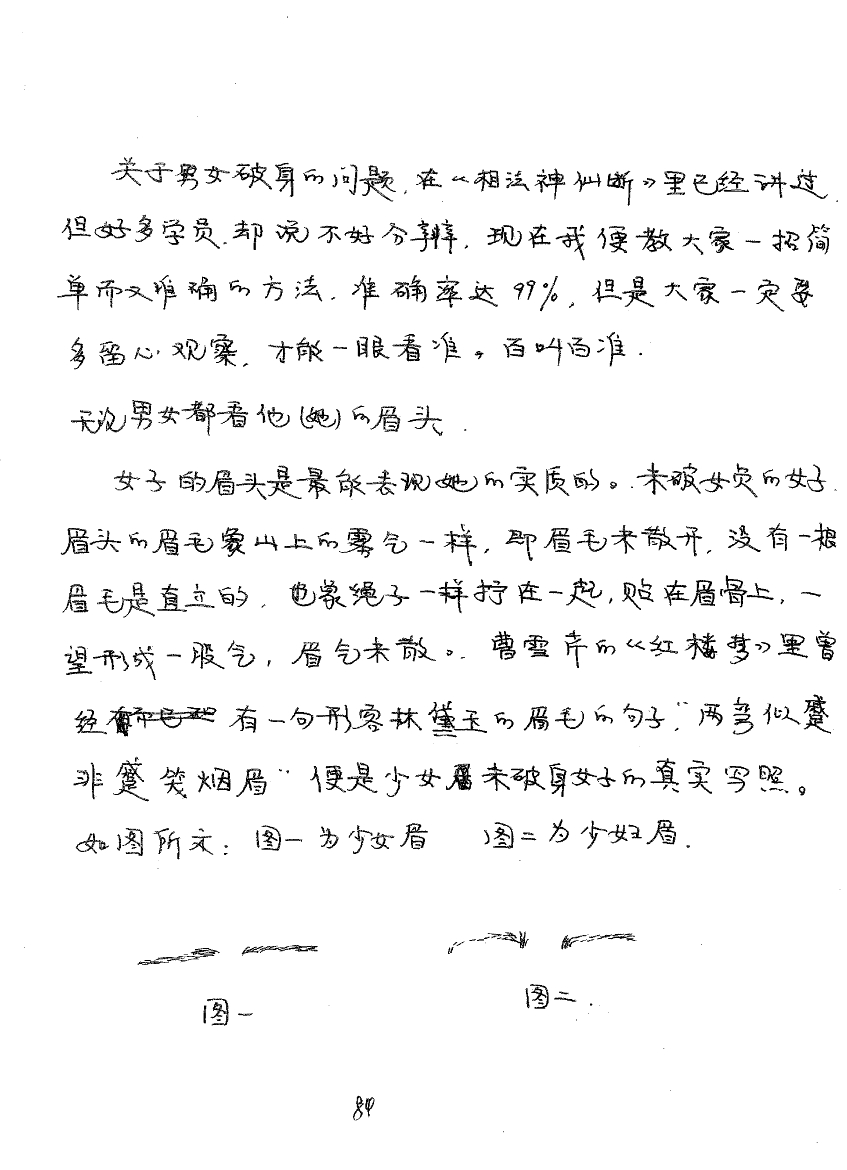 关于男女破身的问题,在《相法神仙断》里已经讲过.
但好多学员.却说不好分辨,现在我便教大家一招简
单而又准确的方法.准确率达99%,但是大家一定要
多留心观察,才能一眼看准。百叫百准.
无论男女都看他(她)的眉头.
女子的眉头是最能表现她的实质的。未破女贞的女子.
眉头的眉毛象山上的雾气一样,即眉毛未散开,没有一根
眉毛是直立的,也象绳子一样拧在一起,贴在眉骨上,一
望形成一股气,眉气未散。曹雪芹的《红楼梦》里曾
经有一句形容林黛玉的眉毛的句子:"两弯似蹙
非蹙笼烟眉"便是少女未破身女子的真实写照。
如图所示:图一为少女眉 图二为少妇眉.
图一 图二.
84